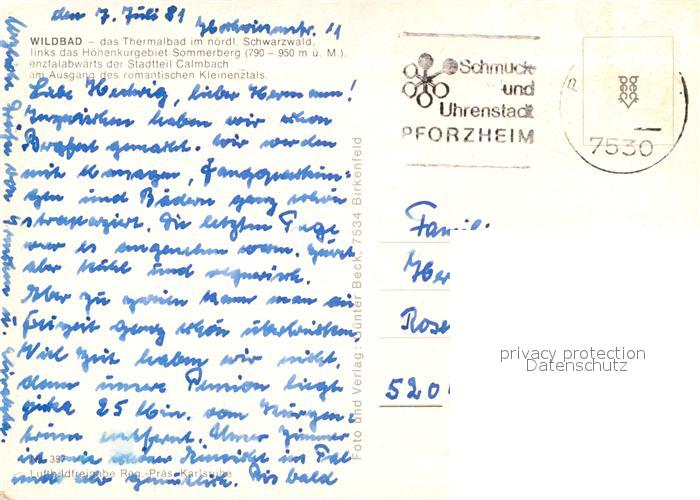 den 7. Juli 81
WILDBAD – das Thermalbad im nördl. Schwarzwald,
links das Höhenkurgebiet Sommerberg (790 – 950 m ü. M.).
enztalabwärts der Stadtteil Calmbach
am Ausgang des romantischen Kleinenztals.
Liebe Hedwig, lieber Hermann!
Inzwischen haben wir schon
Bergfest gemacht. Wir werden
mit Massagen,
und Bädern ganz schön
strapaziert. Die letzten Tage
war es angenehm warm, zuvor
aber kühl und regnerisch.
Aber zu zweien kann man die
Freizeit ganz schön überbrücken.
Viel Zeit haben wir nicht,
denn unsere Pension liegt
zirka 25 Min. vom
entfernt. Unser Zimmer
ist mit schöner Aussicht ins Tal
und sehr gemütlich. Bis bald
herzliche Grüße von
387
Luftbildfreigabe Reg.-Präs. Karlsruhe
Foto und Verlag: Günter Beck, 7534 Birkenfeld
Schmuck-
und
Uhrenstadt
PFORZHEIM
7530
beck
beck
Her
Rose
520
privacy protection
Datenschutz